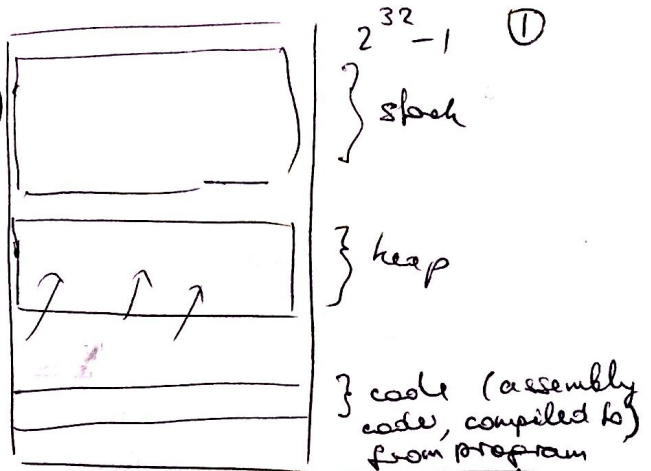 2^32 - 1 ①
} stack
} heap
} code (assembly
code, compiled to)
from program